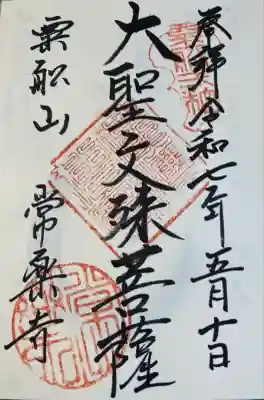 奉拝 令和七年五月十日
大聖文殊菩薩
粟舩山 常樂寺